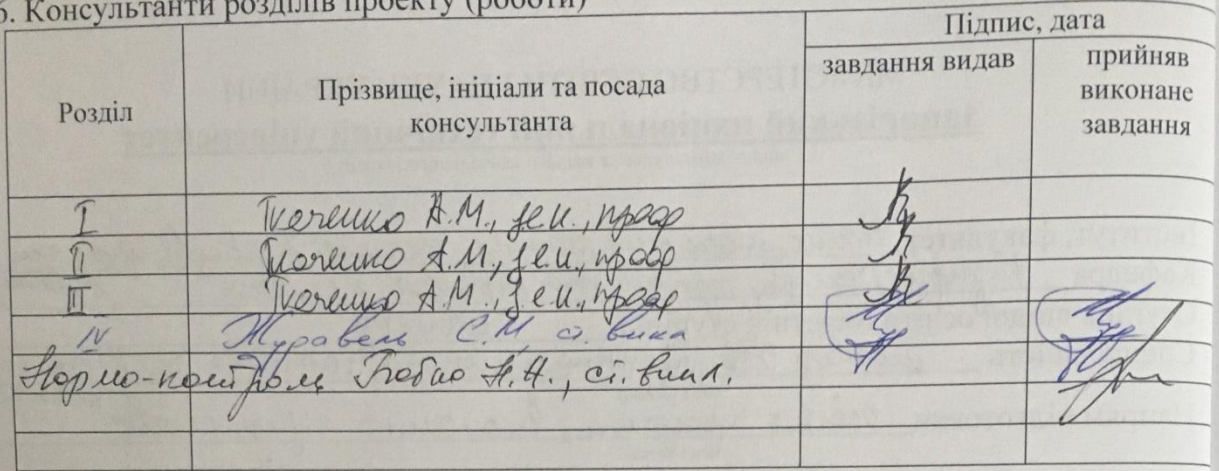 6. Консультанти розділів проекту (роботи)
Розділ
Прізвище, ініціали та посада
консультанта
Підпис, дата
завдання видав
прийняв
виконане
завдання
I Ткаченко А.М., д.е.н., проф
II Ткаченко А.М., д.е.н., проф
III Ткаченко А.М., д.е.н., проф
IV Журавель С.М, ст. викл
Нормо-контроль Н.А., ст. викл.